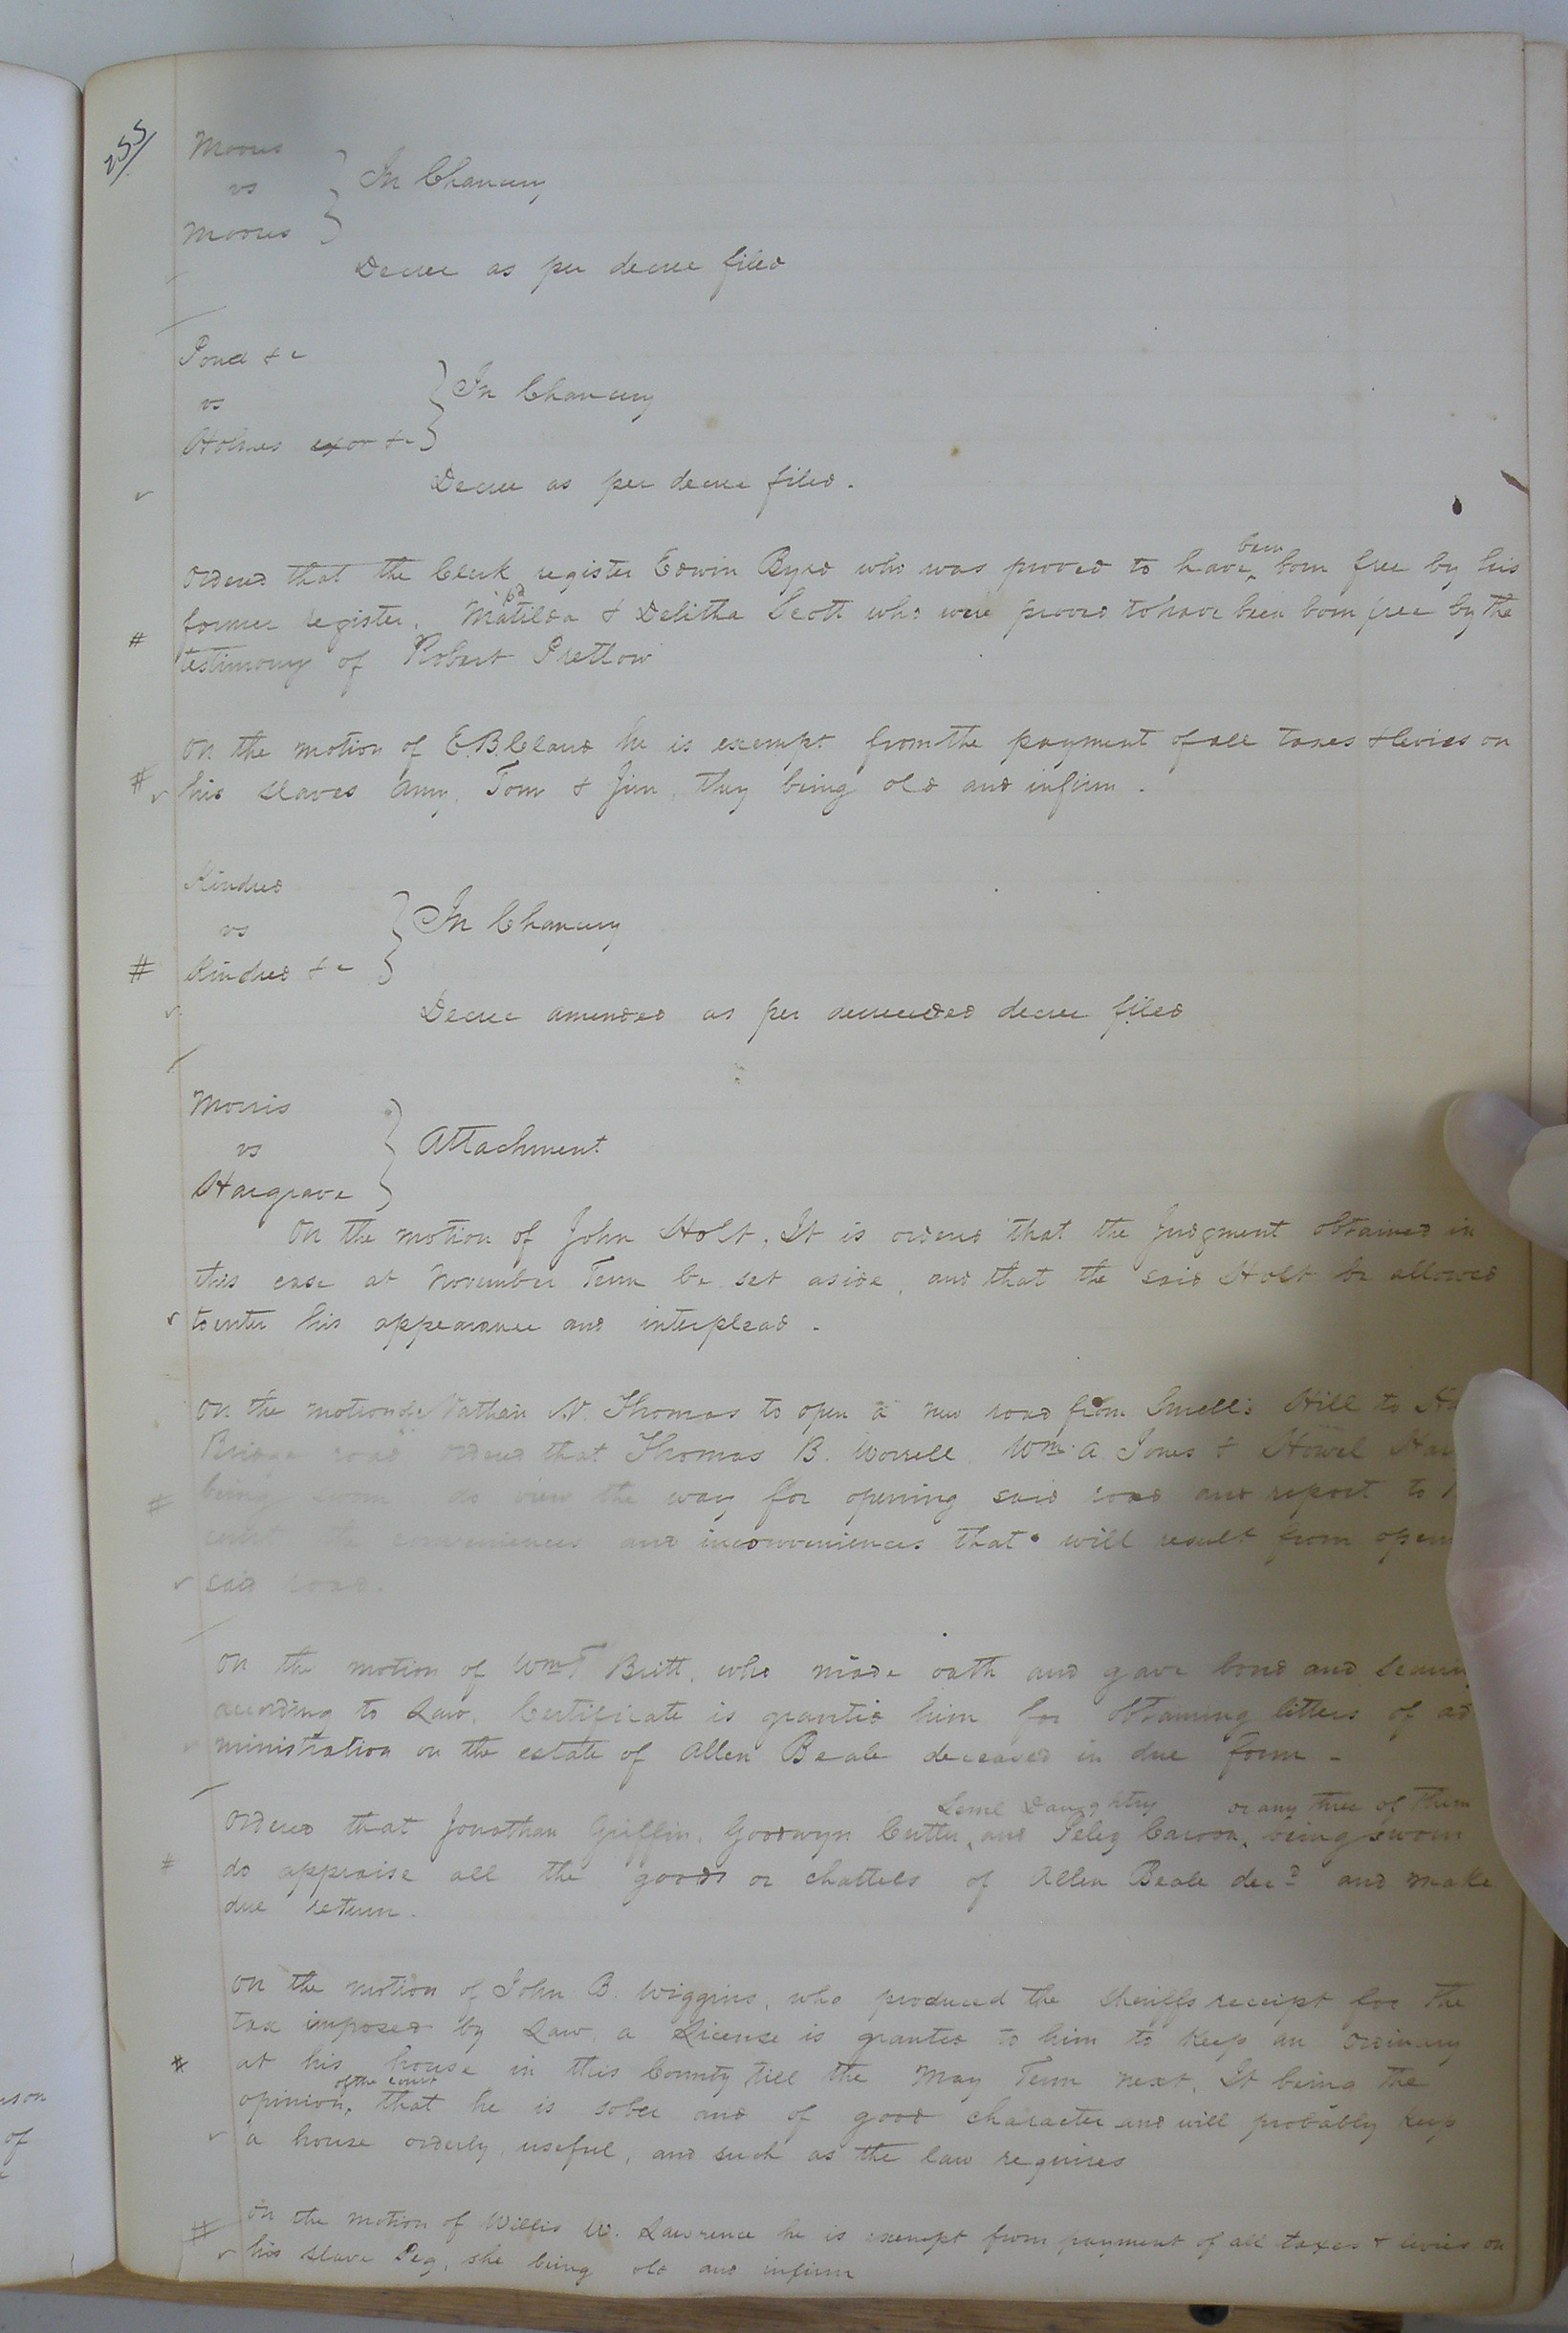 255/
Moores
vs } In Chancery
Moores
Decree as per decree filed
Pond &c
vs } In Chancery
Holmes exor &c
Decree as per decree filed.
Ordered that the Clerk register Edwin Byrd who was proved to have been born free by his
former register, Matilda & Delitha Scott who were proved to have been born free by the
testimony of Robert Pretlow
On the motion of E. B. Claud he is exempt from the payment of all taxes & levies on
his slaves Amy, Tom & Jim, they being old and infirm.
Kindred
vs } In Chancery
Kindred &c
Decree amended as per amended decree filed
Morris
vs } Attachment
Hargrave
On the motion of John Holt, It is ordered that the Judgment obtained in
this case at November Term be set aside, and that the said Holt be allowed
to enter his appearance and interplead.
On the motion of Nathan N. Thomas to open a new road from Hill to
Bridge road ordered that Thomas B. Worrell, Wm. A Jones & Howel
being sworn do view the way for opening said road and report to
court the conveniences and inconveniences that will result from
said road.
On the motion of Wm T Britt, who made oath and gave bond and
according to Law, Certificate is granted him for obtaining letters of ad
ministration on the estate of Allen Beale deceased in due form -
Ordered that Jonathan Griffin, Goodwyn Cutler, Daughtry and Peleg or any three of them being sworn
do appraise all the goods or chattels of Allen Beale decd and make
due return.
On the motion of John B. Wiggins, who produced the Sheriffs receipt for the
tax imposed by Law, a License is granted to him to keep an Ordinary
at his house in this County till the May Term next, It being the
opinion of the court that he is sober and of good character and will probably keep
a house orderly, useful, and such as the law requires
On the motion of Willis W. Lawrence he is exempt from payment of all taxes & levies on
his slave Peg, she being old and infirm